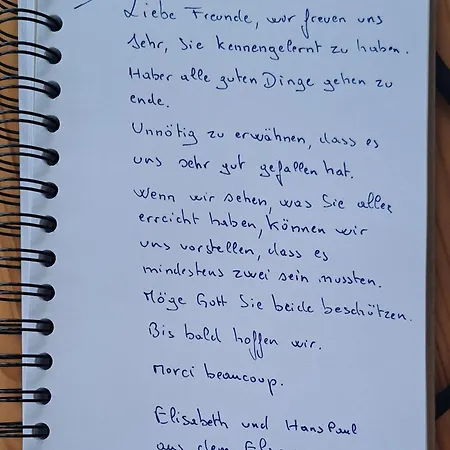 Liebe Freunde, wir freuen uns
sehr, Sie kennengelernt zu haben.
Haber alle guten Dinge gehen zu
ende.
Unnötig zu erwähnen, dass es
uns sehr gut gefallen hat.
Wenn wir sehen, was Sie alles
erreicht haben, können wir
uns vorstellen, dass es
mindestens zwei sein mussten.
Möge Gott Sie beide beschützen.
Bis bald hoffen wir.
Merci beaucoup.
Elisabeth und HansPaul
aus dem